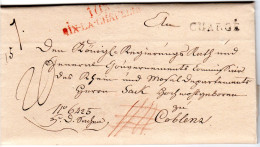 An
CHARGÉ
AIX-LA-CHAPELLE
Den Königl. Regierungs Rath und
General Gouvernements Commissair
des Rhein und Mosel Departements
Herrn Sack Hochwohlgeboren
zu
Coblenz
No 6425